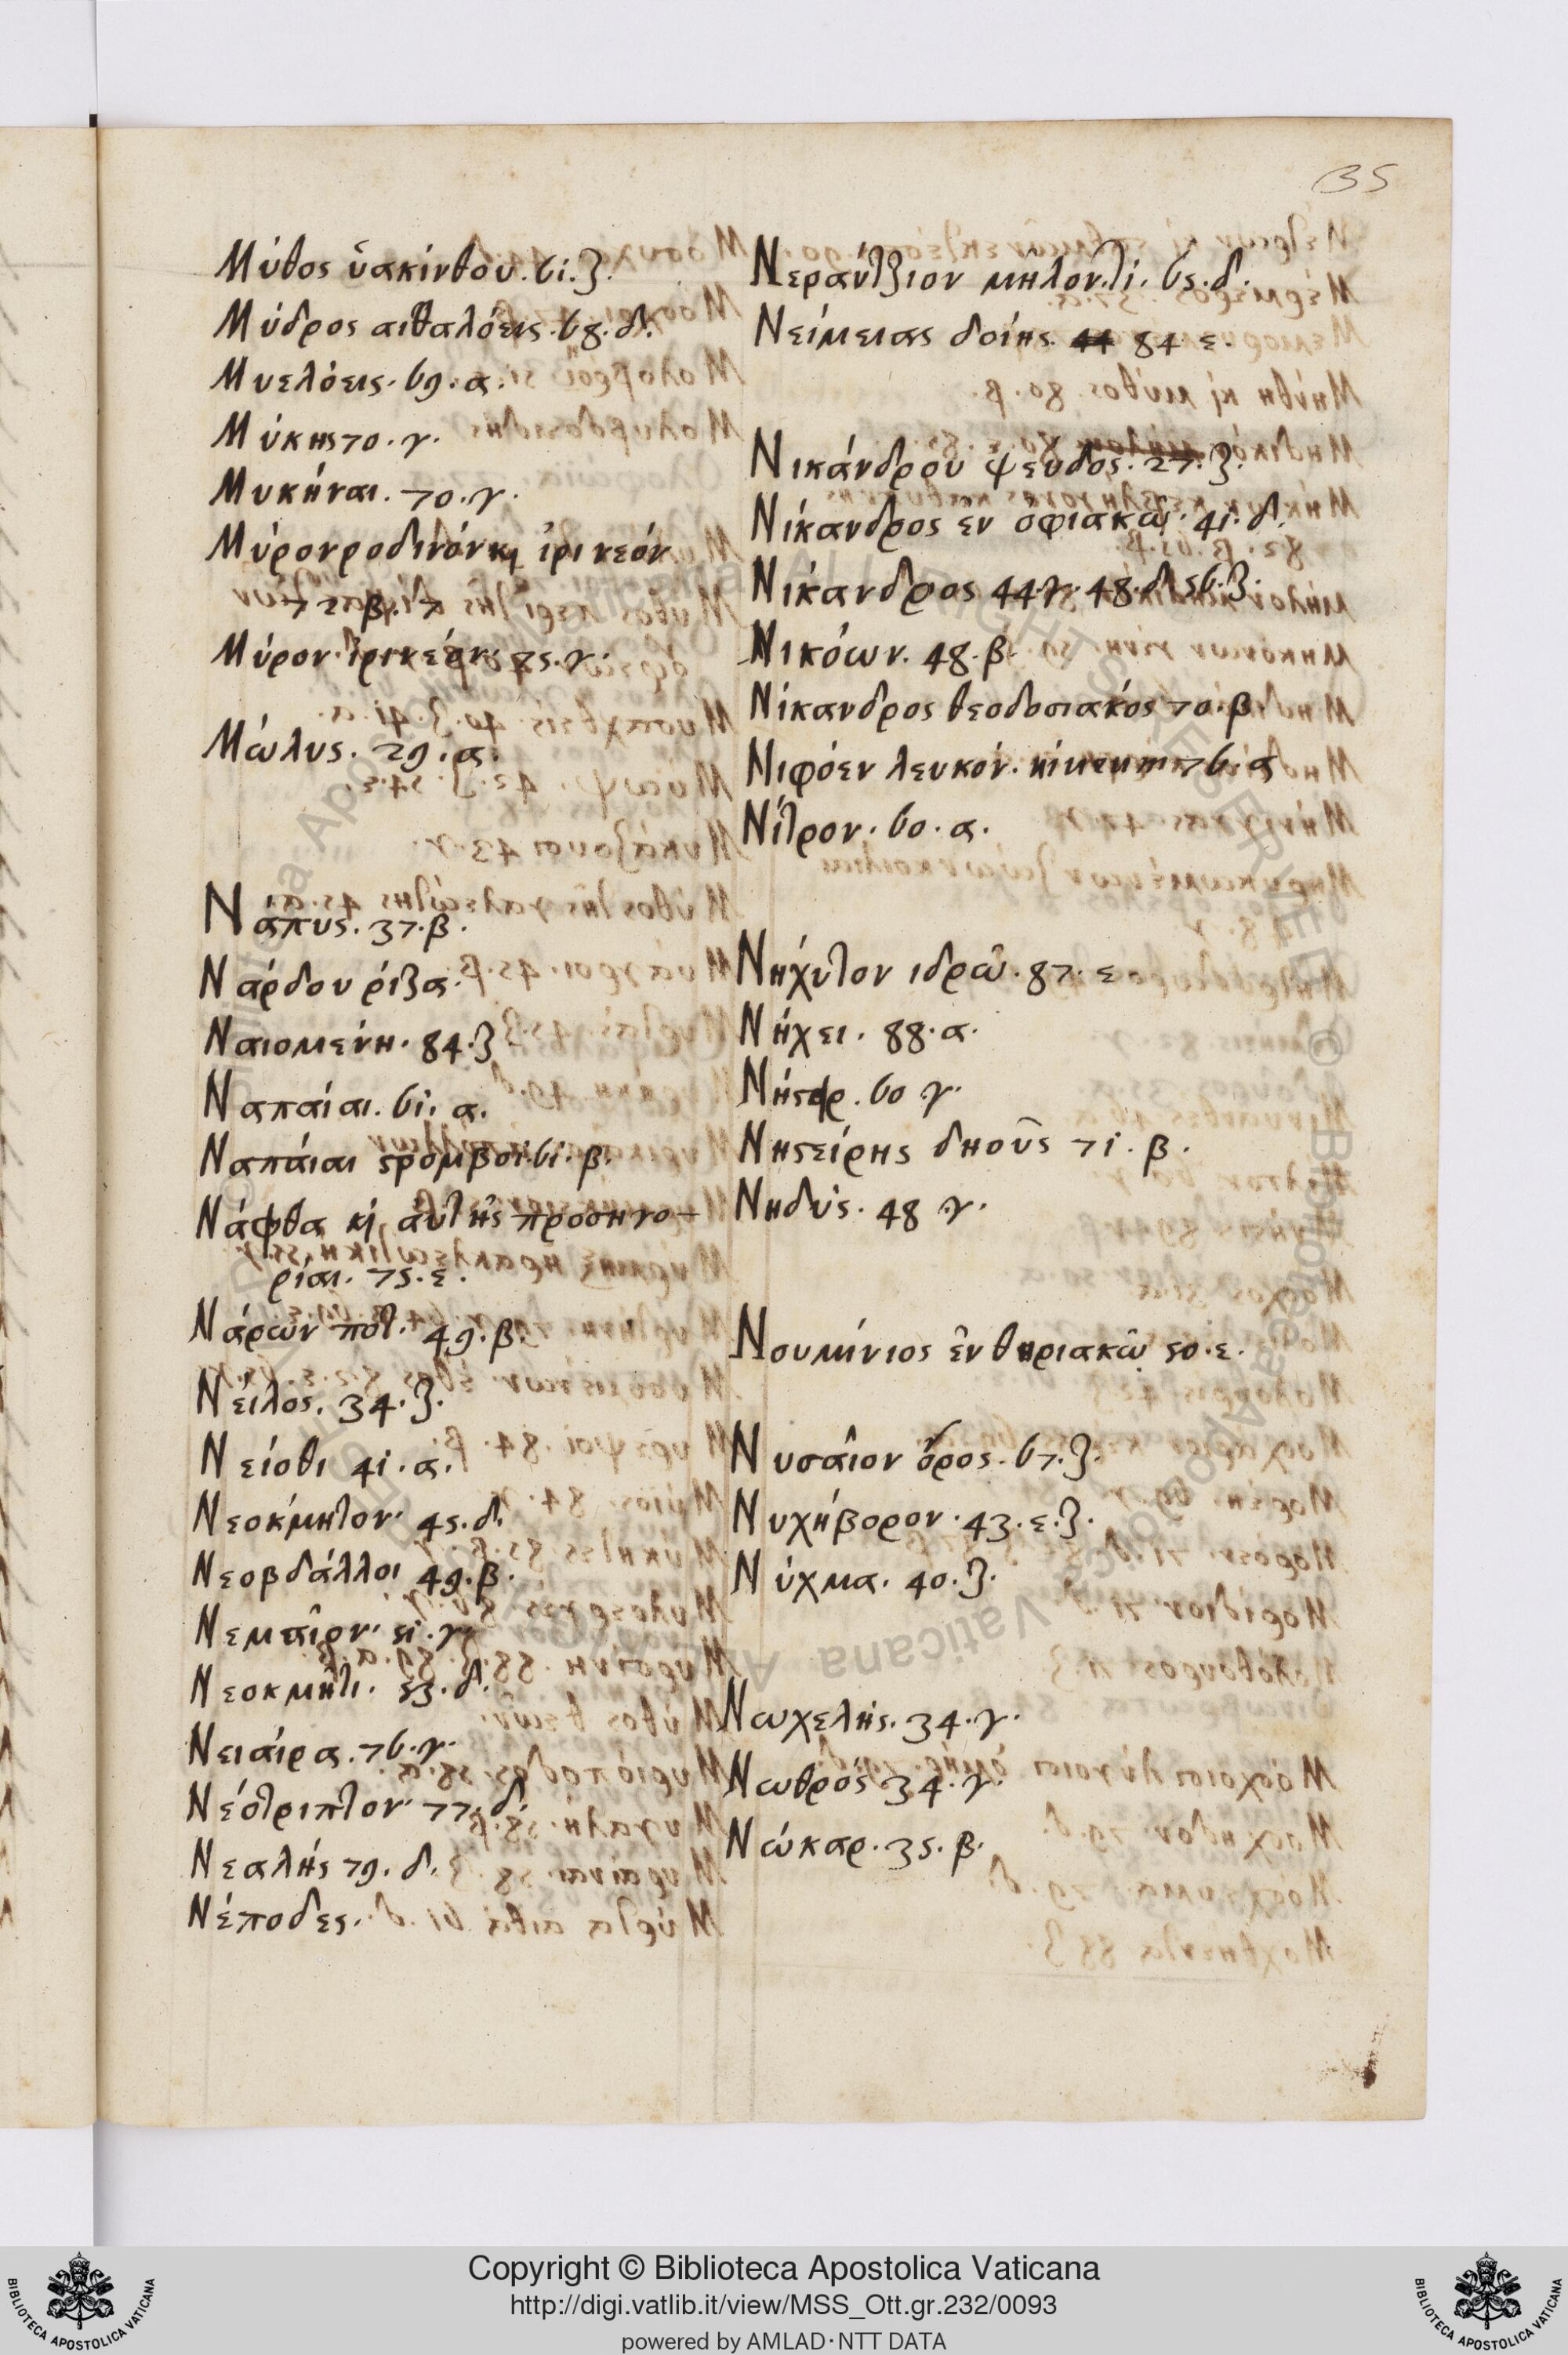 35
Μύθος ὑακίνθου. 61. ζ.
Μύδρος αιθαλόεις. 68. δ.
Μυελόεις. 69. α.
Μύκης 70. γ.
Μυκήναι. 70. γ.
Μύρον ροδινόν κ ἰρινεόν
72 β. 7
Μύρον ἰρινεόν. 75. γ.
Μώλυς. 29. α.
Νάπυς. 37. β.
Νάρδου ρίζα.
Ναιομένη. 84. ζ
Ναπαίαι. 61. α.
Ναπάιαι ϛρομβοί. 61. β.
Νάφθα κ αὐτῆς προσηγο-
ρίαι. 75. ε.
Νάρων ποτ. 49. β.
Νείλος. 34. ζ.
Νείοθι 41. α.
Νεοκμητον. 45. δ.
Νεοβδάλλοι 49. β.
51. γ.
Νεοκμήτι. 53. δ.
Νειαίρα. 76. γ.
Νεότριπτον. 77. δ.
Νεαλής 79. δ.
Νέποδες.
Νεράντζιον μηλον. τί. 65. δ.
Νείμειας δοίης. 44 84 ε.
Νικάνδρου ψευδος. 27. ζ.
Νίκανδρος εν οφιακῶ. 41. δ.
Νίκανδρος 44. γ. 48. δ. 56. ζ.
Νικόων. 48. β.
Νίκανδρος θεοδοσιακός 70. β
Νιφόεν λευκόν. 76. α
Νίτρον. 60. α.
Νηχυτον ιδρῶ. 87. ε
Νήχει. 88. α.
60 γ.
Νηϛείρης δηοῦς 71. β.
Νηδύς. 48 γ.
Νουμήνιος ἐν θηριακῶ 50. ε.
Νυσαῖον ὄρος. 67. ζ.
Νυχήβορον. 43. ε. ζ.
Νύχμα. 40. ζ.
Νωχελής. 34. γ.
Νωθρός 34. γ.
Νώκαρ. 35. β.
Copyright © Biblioteca Apostolica Vaticana
http://digi.vatlib.it/view/MSS_Ott.gr.232/0093
powered by AMLAD·NTT DATA
BIBLIOTECA APOSTOLICA VATICANA
BIBLIOTECA APOSTOLICA VATICANA